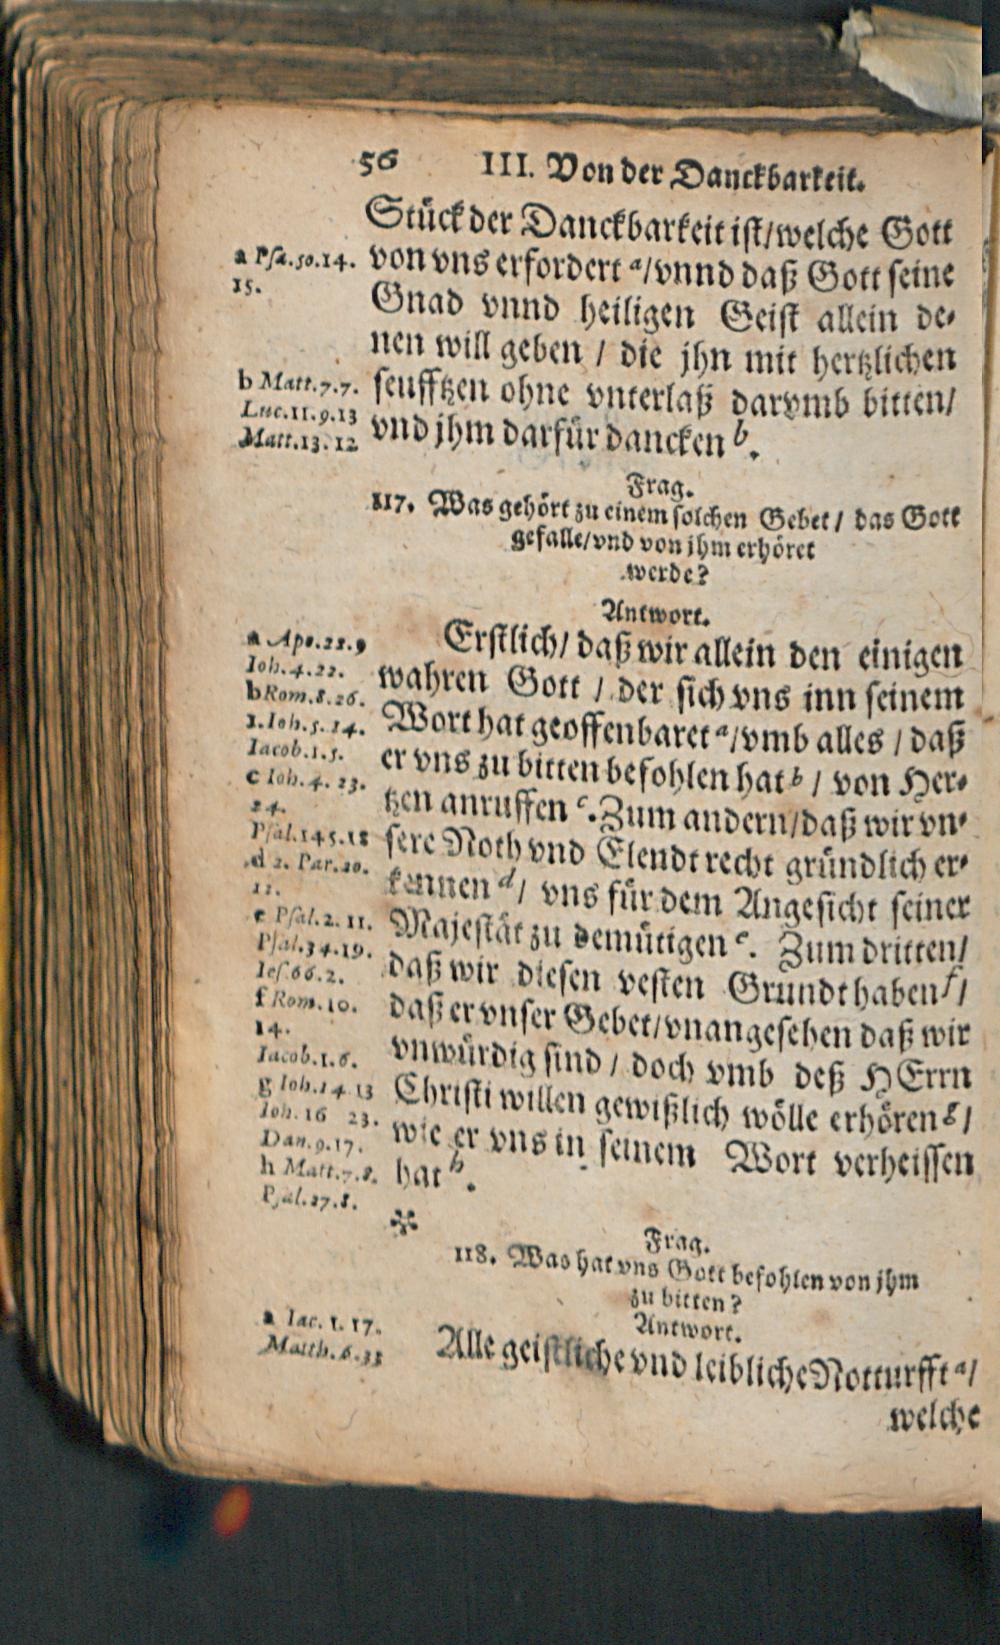 56 III. Von der Danckbarkeit.
Stück der Danckbarkeit ist/welche Gott
a Psa.50.14. von vns erfordert a/vnnd daß Gott seine
15. Gnad vnnd heiligen Geist allein de-
nen will geben / die jhn mit hertzlichen
b Matt.7.7. seufftzen ohne vnterlaß darvmb bitten/
Luc.11.9.13 vnd jhm darfür dancken b.
Matt.13.12
Frag.
117. Was gehört zu einem solchen Gebet / das Gott
gefalle/vnd von jhm erhöret
werde?
Antwort.
a Apo.22.9 Erstlich/ daß wir allein den einigen
Ioh.4.22. wahren Gott / der sich vns inn seinem
b Rom.8.26. Wort hat geoffenbaret a/vmb alles / daß
1.Ioh.5.14. er vns zu bitten befohlen hat b / von Her-
Iacob.1.5. tzen anruffen c. Zum andern/daß wir vn-
c Ioh.4.23. sere Noth vnd Elendt recht gründlich er-
24. kennen d/ vns für dem Angesicht seiner
Psal.145.18 Majestät zu demütigen e. Zum dritten/
d 2. Par.20. daß wir diesen vesten Grundt haben f/
12. daß er vnser Gebet/vnangesehen daß wir
e Psal.2.11. vnwürdig sind / doch vmb deß HErrn
Psal.34.19. Christi willen gewißlich wölle erhören g/
Ies.66.2. wie er vns in seinem Wort verheissen
f Rom.10. hat h.
14.
Iacob.1.6.
g Ioh.14 13
Ioh.16 23.
Dan.9.17.
h Matt.7.8.
Psal.27.8.
Frag.
118. Was hat vns Gott befohlen von jhm
zu bitten?
Antwort.
a Iac.1.17. Alle geistliche vnd leibliche Notturfft a/
Matth.6.33
welche